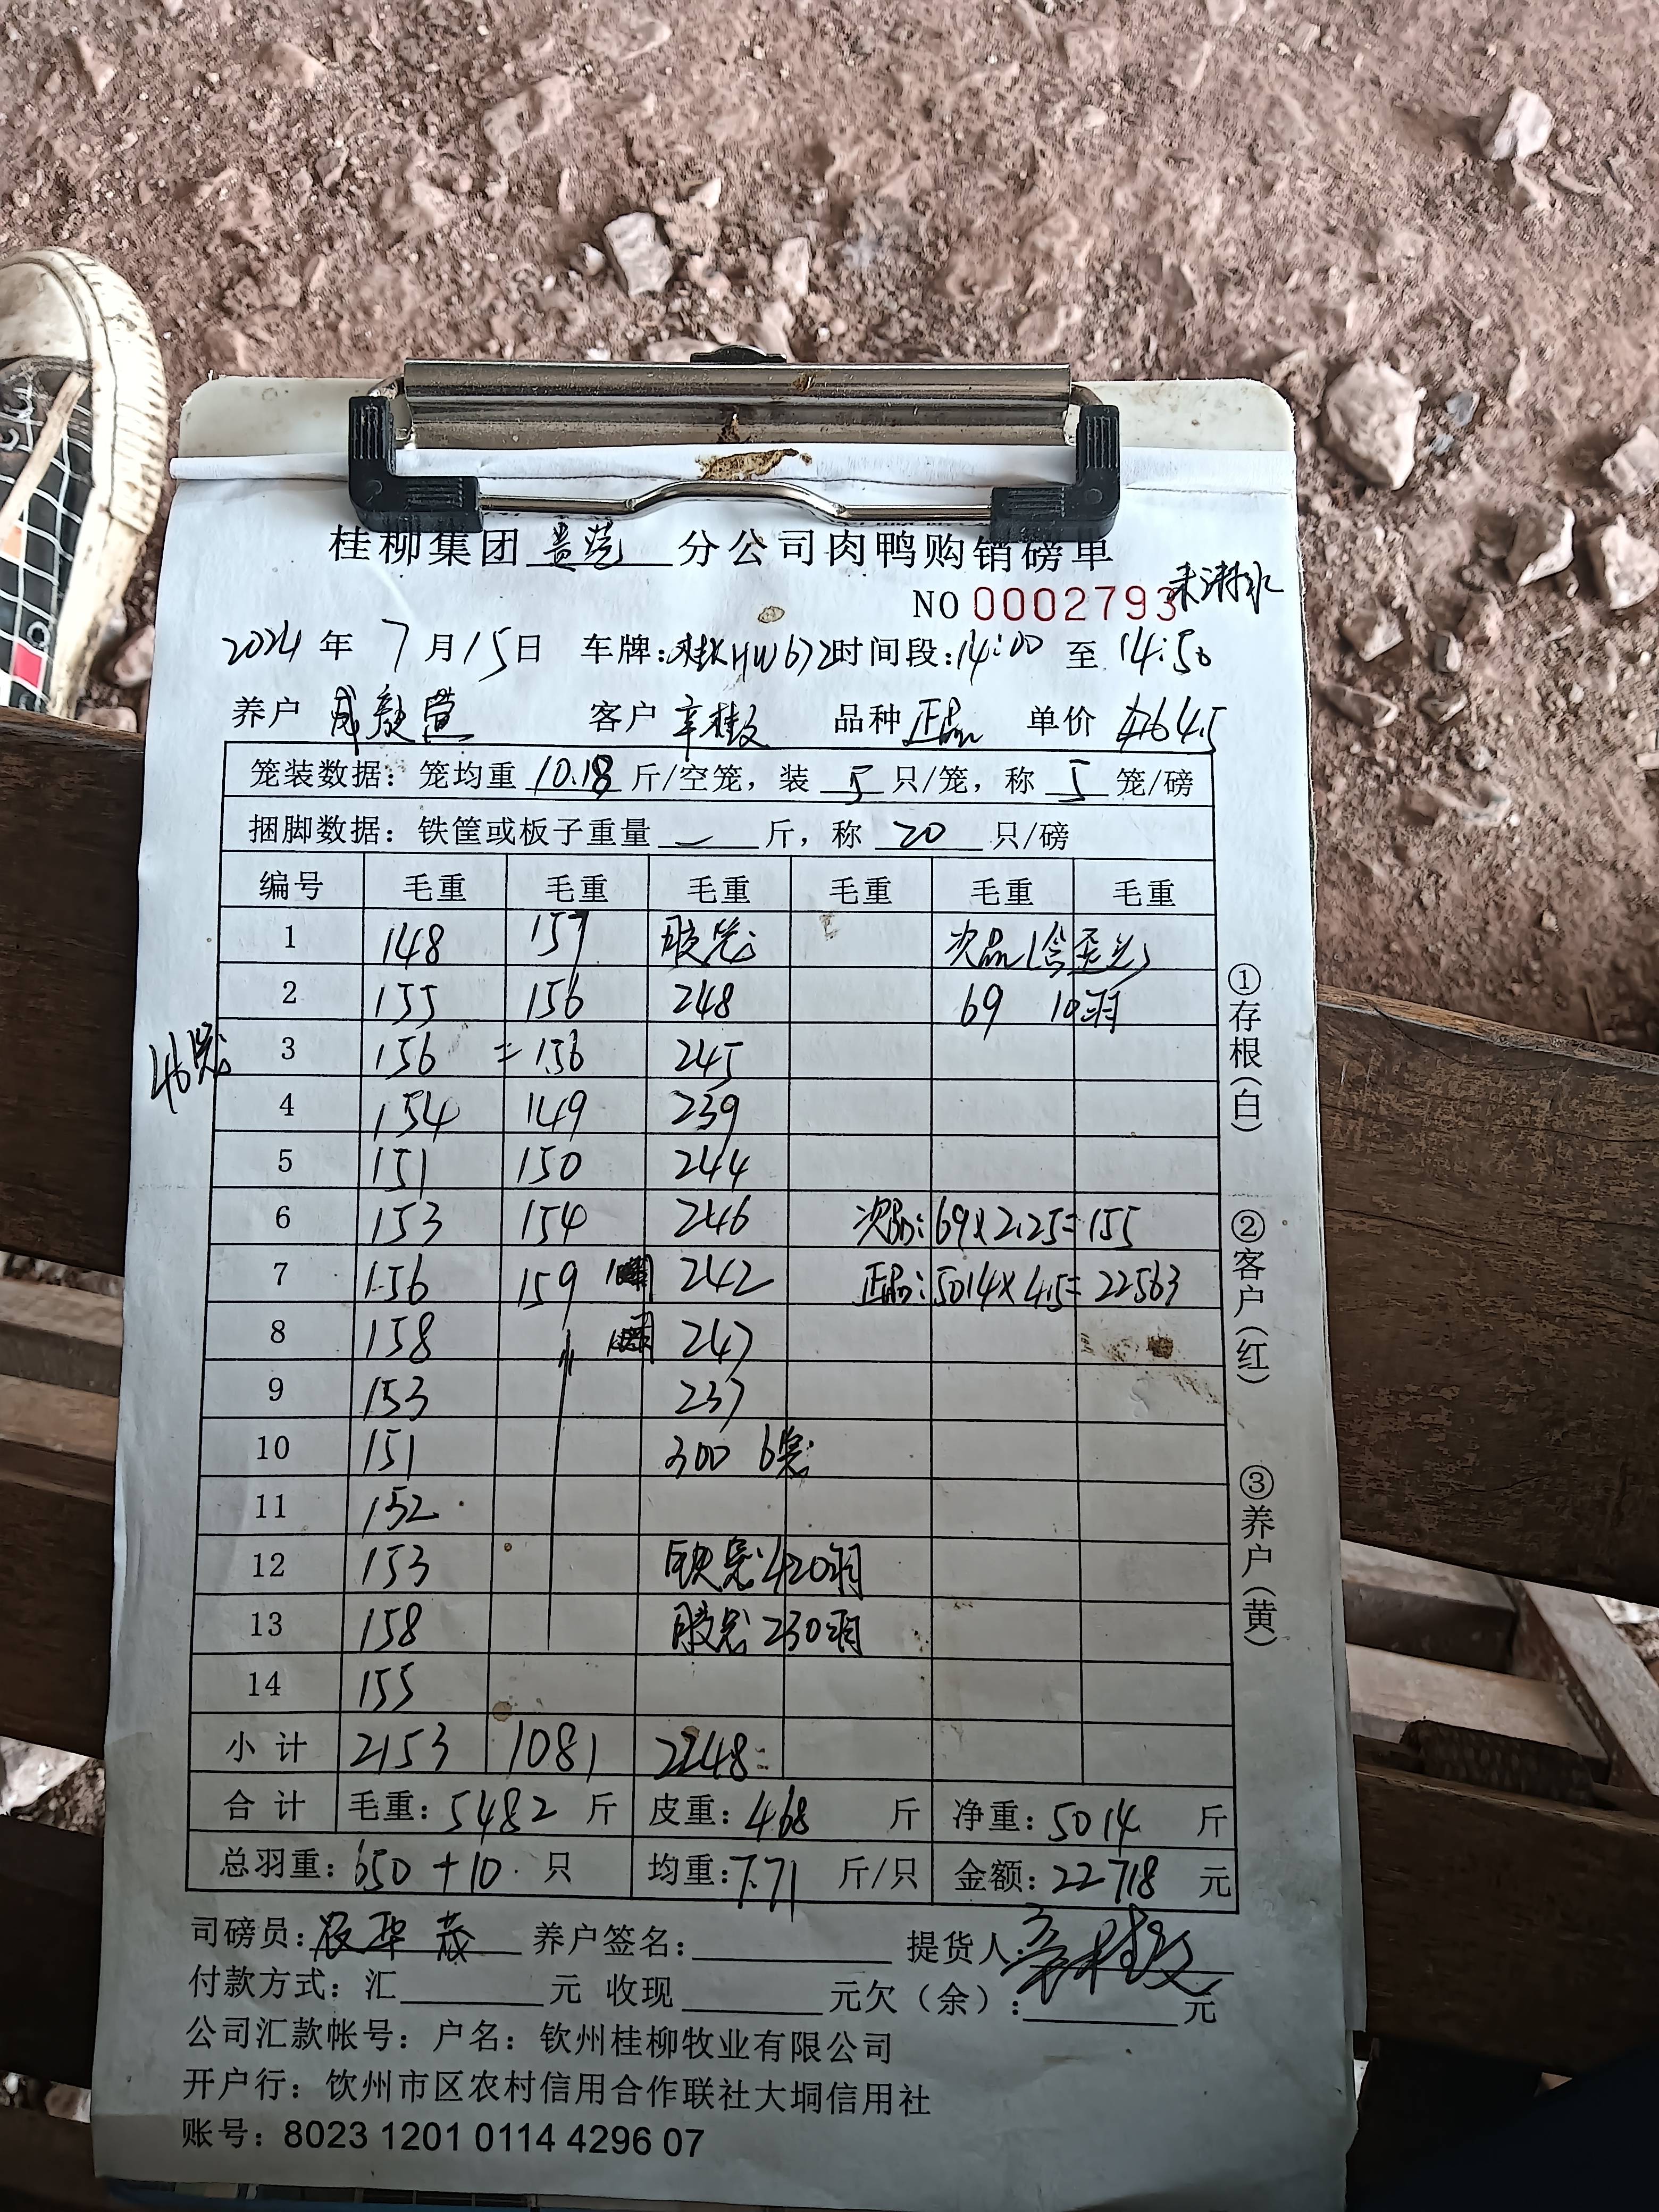 桂柳集团贵港分公司肉鸭购销磅单
NO 0002793 未淋水
2024年 7月15日 车牌:桂KHW672 时间段:14:00 至 14:50
养户 客户 辛桂文 品种 正品 单价 4.5
笼装数据：笼均重 10.18 斤/空笼，装 5 只/笼，称 5 笼/磅
捆脚数据：铁筐或板子重量 — 斤，称 20 只/磅
编号 毛重 毛重 毛重 毛重 毛重 毛重
1 148 157 胶笼 次品(含歪头)
2 155 156 248 69 10羽
46笼
3 156 = 156 245
4 154 149 239
5 151 150 244
6 153 154 246 次品:69×2.25=155
7 156 159 242 正品:5014×4.5=22563
8 158 247
9 153 237
10 151 300 6笼
11 152
12 153 铁笼:420羽
13 158 胶笼230羽
14 155
小计 2153 1081 2248
合计 毛重: 5482 斤 皮重: 468 斤 净重: 5014 斤
总羽重: 650+10 只 均重: 7.71 斤/只 金额: 22718 元
司磅员: 养户签名: 提货人: 辛桂文
付款方式：汇 元 收现 元欠（余）: 元
公司汇款帐号：户名：钦州桂柳牧业有限公司
开户行：饮州市区农村信用合作联社大垌信用社
账号：8023 1201 0114 4296 07
①存根(白) ②客户(红) ③养户(黄)